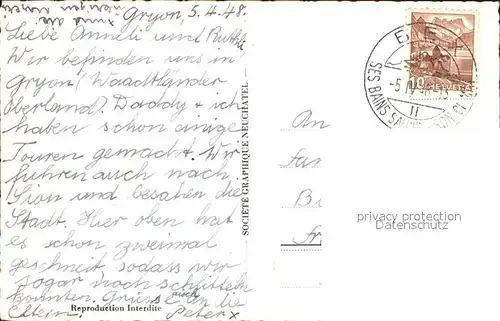 Gryon, 5.4.48.
Liebe Anneli und Ruthli
Wir befinden uns in
Gryon (Waadtländer
Oberland). Daddy + ich
haben schon einige
Touren gemacht. Wir
fuhren auch nach
Sion und besahen die
Stadt. Hier oben hat
es schon zweimal
geschneit sodass wir
sogar noch schlitteln
konnten. Grüsse auch an die
Eltern. Peter x
Reproduction Interdite
SOCIÉTÉ GRAPHIQUE NEUCHATEL
An
Fam
B
Fr
HELVETIA
10
SES BAINS SALINS SON CL
privacy protection
Datenschutz